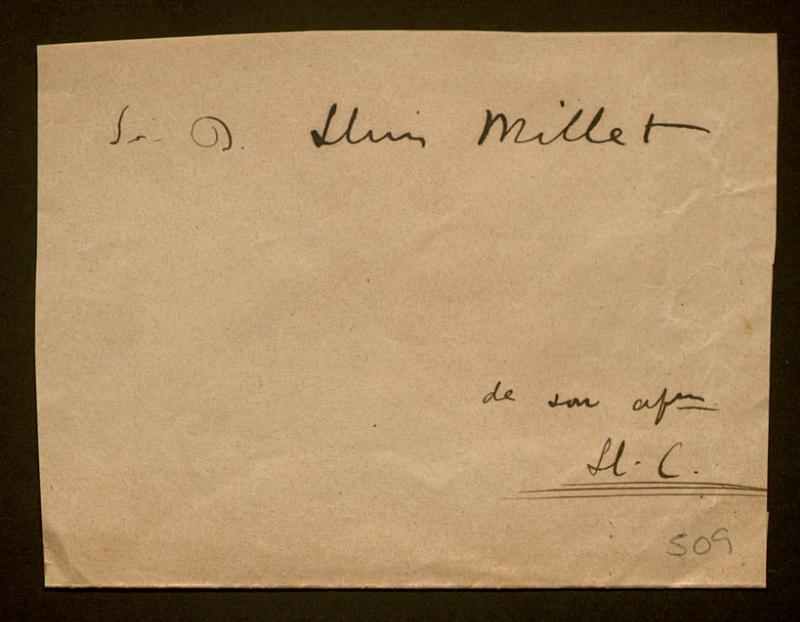 Sr. D. Lluis Millet
de son afm
Ll. C.
509